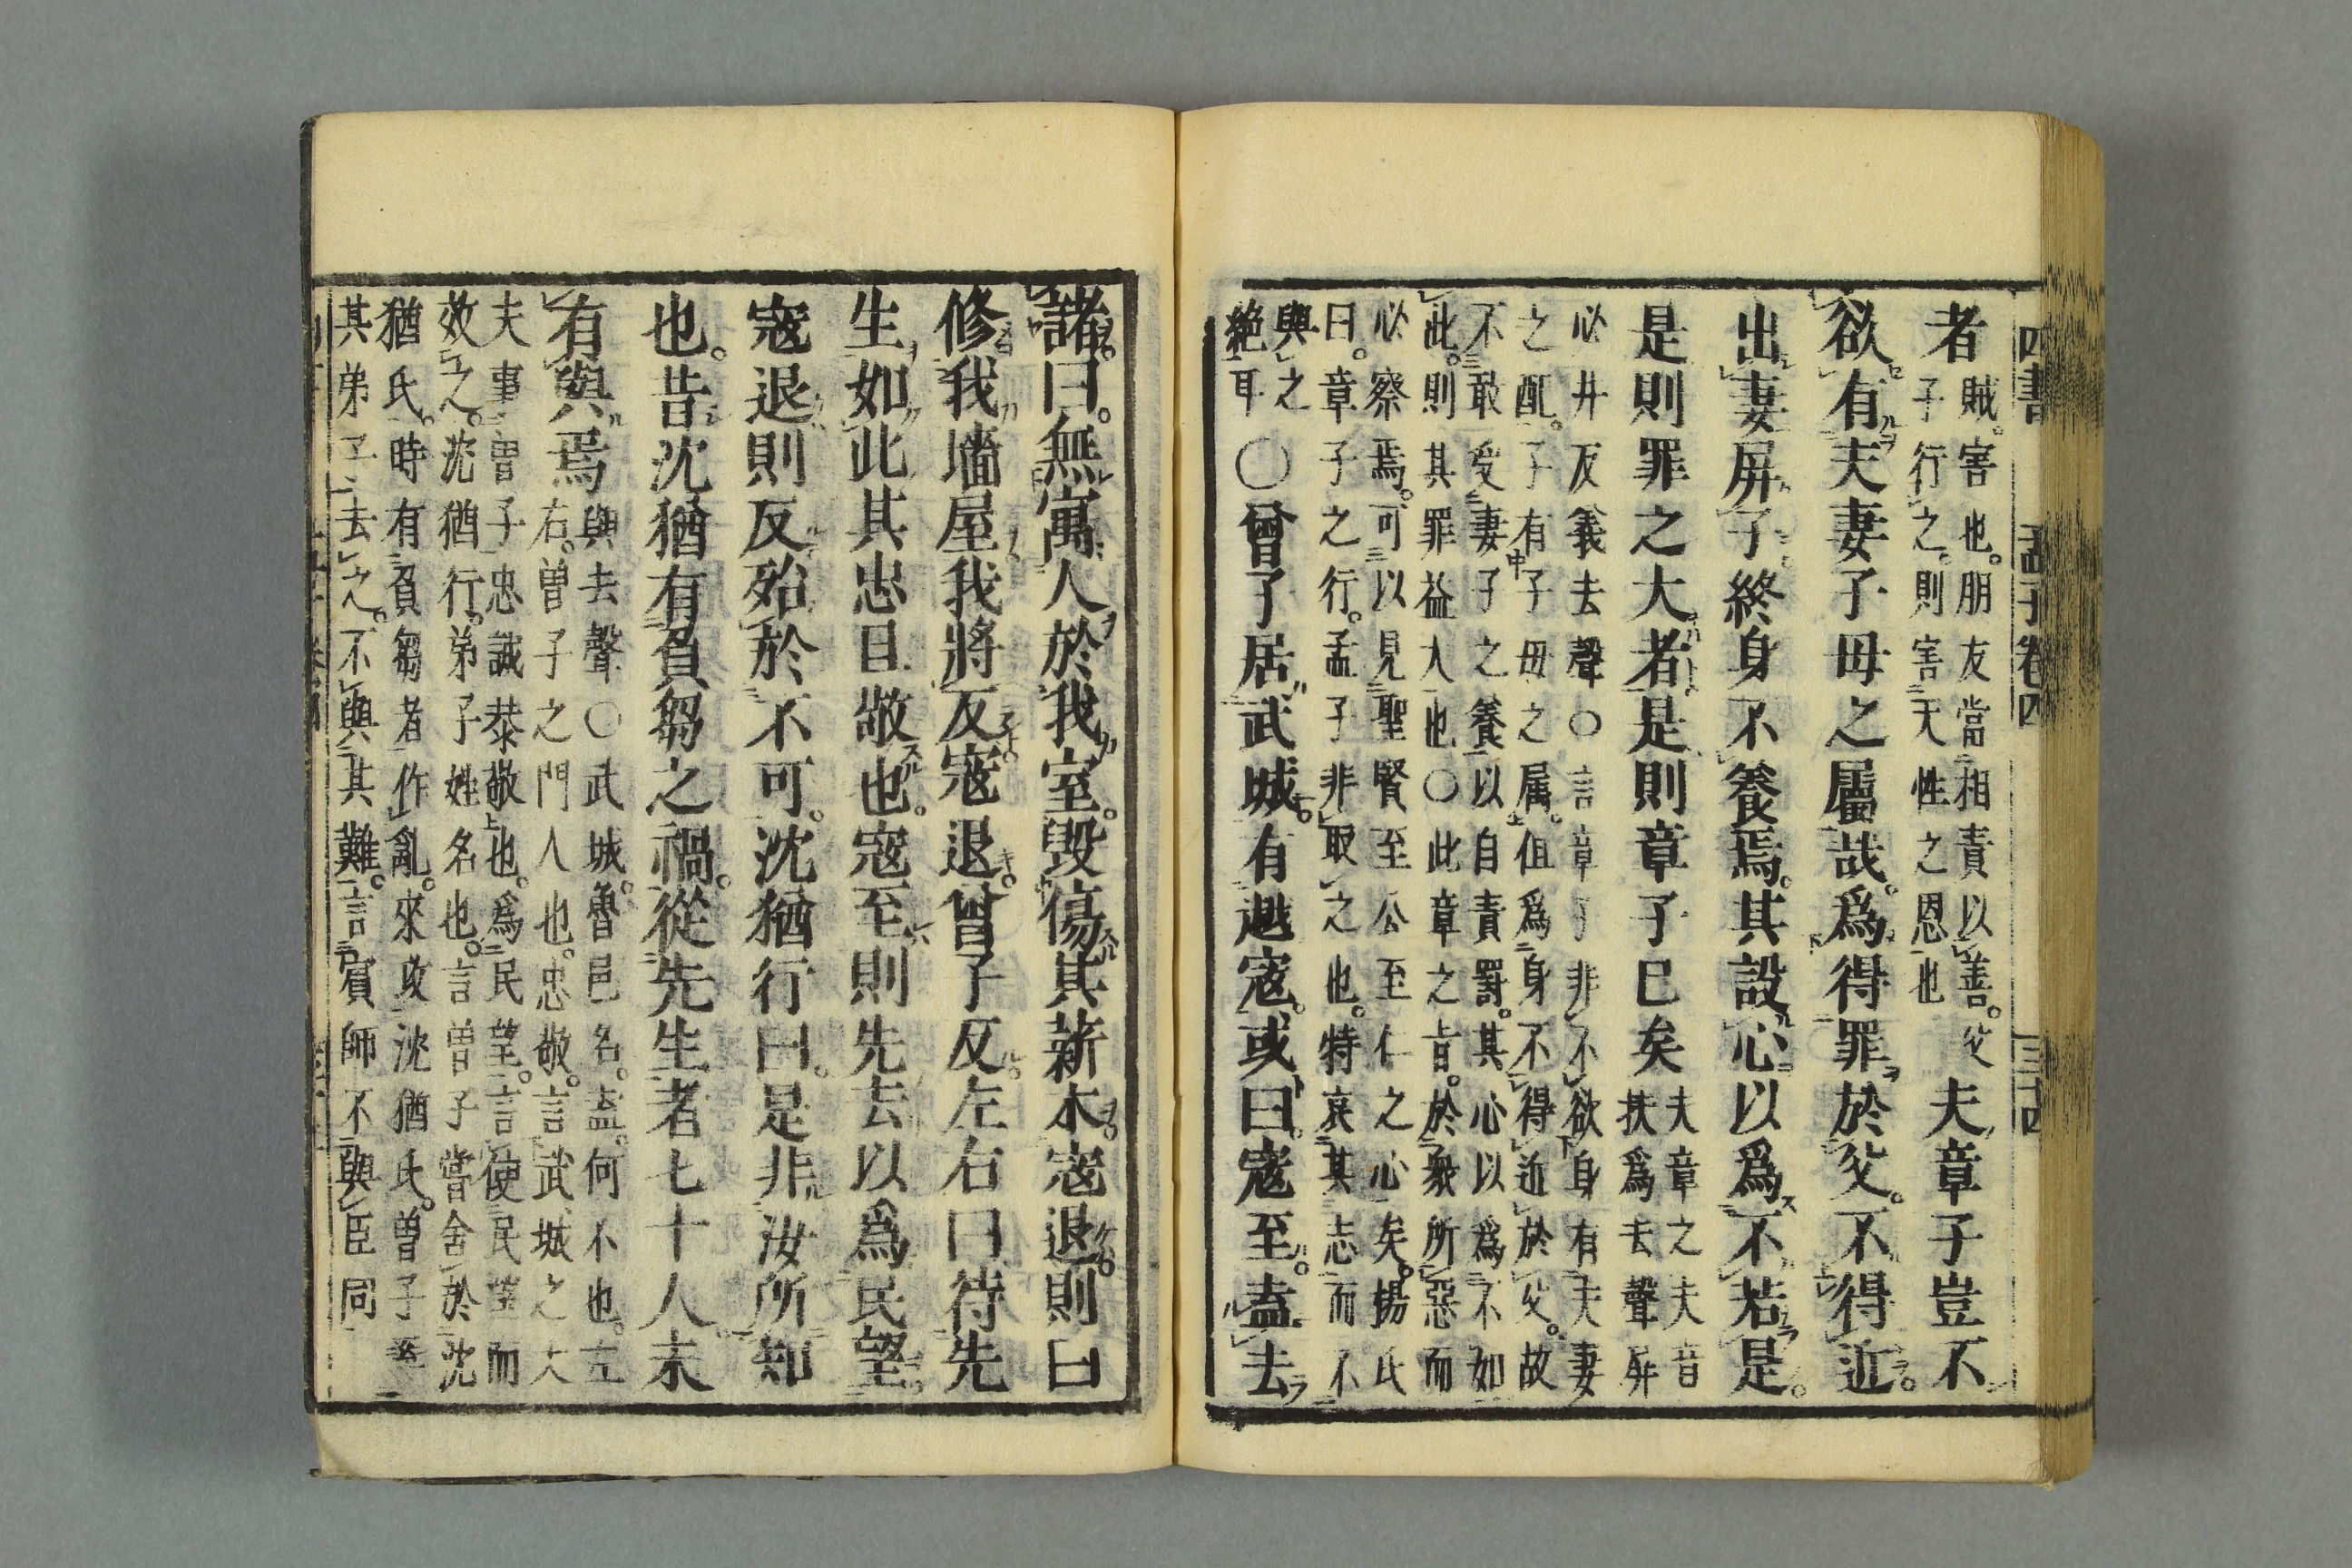 四書 孟子卷四 三十四
者 賊害也朋友當相責以善父
子行之則害天性之恩也 夫章子豈不
欲有夫妻子母之屬哉爲得罪於父不得近
出妻屏子終身不養焉其設心以爲不若是
是則罪之大者是則章子已矣 夫章之夫音
扶爲去聲屏
必井反養去聲○言章子非不欲身有夫妻
之配子有子母之属但爲身不得近於父故
不敢受妻子之養以自責罰其心以爲不如
此則其罪益大也○此章之旨於衆所惡而
必察焉可以見聖賢至公至仁之心矣楊氏
曰章子之行孟子非取之也特哀其志而不
與之
絶耳○曾子居武城有越寇或曰寇至盍去
諸曰無寓人於我室毀傷其薪木寇退則曰
修我墻屋我將反寇退曾子反左右曰待先
生如此其忠且敬也寇至則先去以爲民望
寇退則反殆於不可沈猶行曰是非汝所知
也昔沈猶有負芻之禍從先生者七十人未
有與焉 與去聲○武城魯邑名盍何不也左
右曽子之門人也忠敬言武城之大
夫事曽子忠誠恭敬也爲民望言使民望而
效之沈猶行弟子姓名也言曽子嘗舍於沈
猶氏時有負芻者作亂來攻沈猶氏曽子率
其弟子去之不與其難言賓師不與臣同